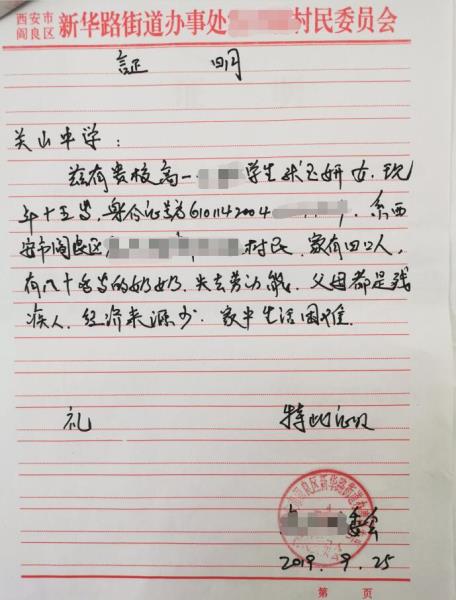 西安市
阎良区
新华路街道办事处 村民委员会
証 明
关山中学：
兹有贵校高一 学生 玉妍 女, 现
年十五岁, 身份证号为6101142004 , 系西
安市阎良区 村民, 家有四口人,
有八十多岁的奶奶, 失去劳动能, 父母都是残
疾人, 经济来源少, 家中生活困难.
礼 特此证明
委会
2019. 9. 25
第 页